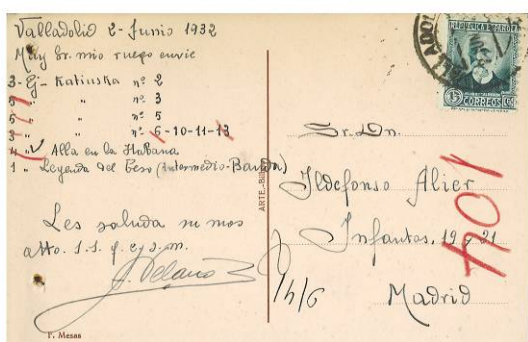 Valladolid 2-Junio 1932
Muy Sr. mio ruego envie
3- Ej- Katiuska nº 2
" " nº 3
" " nº 5
3 " " nº 6-10-11-13
" Alla en la Habana
1 " Leyenda del Beso (Intermedio-Banda)
Les saluda su mas
atto. s.s. q. e. s. m.
F. Mesas
ARTE-BILBAO
REPUBLICA ESPAÑOLA
15 CORREOS
Sr. Dn.
Ildefonso Alier
Infantas, 19 y 21
Madrid
1/4/6
104